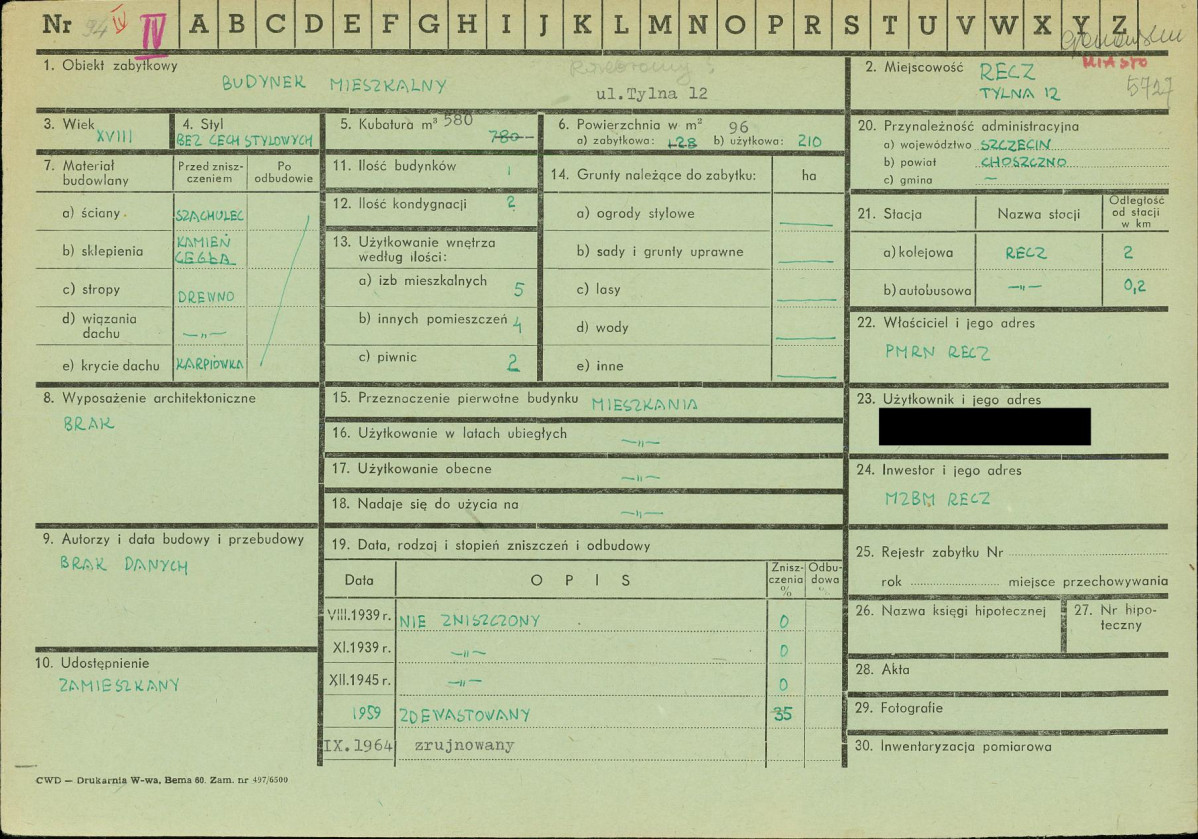 Nr 94 IV IV A B C D E F G H I J K L M N O P R S T U V W X Y Z
MIASTO
5727
1. Obiekt zabytkowy
BUDYNEK MIESZKALNY
ul.Tylna 12
2. Miejscowość RECZ
TYLNA 12
3. Wiek
XVIII
4. Styl
BEZ CECH STYLOWYCH
5. Kubatura m³ 580
780
6. Powierzchnia w m² 96
a) zabytkowa: 128 b) użytkowa: 210
20. Przynależność administracyjna
a) województwo SZCZECIN
b) powiat CHOSZCZNO
c) gmina —
7. Materiał budowlany
Przed zniszczeniem
Po odbudowie
a) ściany SZACHULEC
b) sklepienia KAMIEŃ CEGŁA
c) stropy DREWNO
d) wiązania dachu —„—
e) krycie dachu KARPIÓWKA
11. Ilość budynków 1
12. Ilość kondygnacji 2
13. Użytkowanie wnętrza
według ilości:
a) izb mieszkalnych 5
b) innych pomieszczeń 4
c) piwnic 2
14. Grunty należące do zabytku: ha
a) ogrody stylowe —
b) sady i grunty uprawne —
c) lasy —
d) wody —
e) inne —
21. Stacja Nazwa stacji Odległość od stacji w km
a) kolejowa RECZ 2
b) autobusowa —„— 0,2
22. Właściciel i jego adres
PMRN RECZ
8. Wyposażenie architektoniczne
BRAK
15. Przeznaczenie pierwotne budynku MIESZKANIA
16. Użytkowanie w latach ubiegłych —„—
17. Użytkowanie obecne —„—
18. Nadaje się do użycia na —„—
23. Użytkownik i jego adres
24. Inwestor i jego adres
MZBM RECZ
9. Autorzy i data budowy i przebudowy
BRAK DANYCH
10. Udostępnienie
ZAMIESZKANY
19. Data, rodzaj i stopień zniszczeń i odbudowy
Data OPIS Zniszczenia % Odbudowa %
VIII.1939 r. NIE ZNISZCZONY 0
XI.1939 r. —„— 0
XII.1945 r. —„— 0
1959 ZDEWASTOWANY 35
IX.1964 zrujnowany
25. Rejestr zabytku Nr
rok miejsce przechowywania
26. Nazwa księgi hipotecznej
27. Nr hipoteczny
28. Akta
29. Fotografie
30. Inwentaryzacja pomiarowa
CWD — Drukarnia W-wa, Bema 60. Zam. nr 497/6500